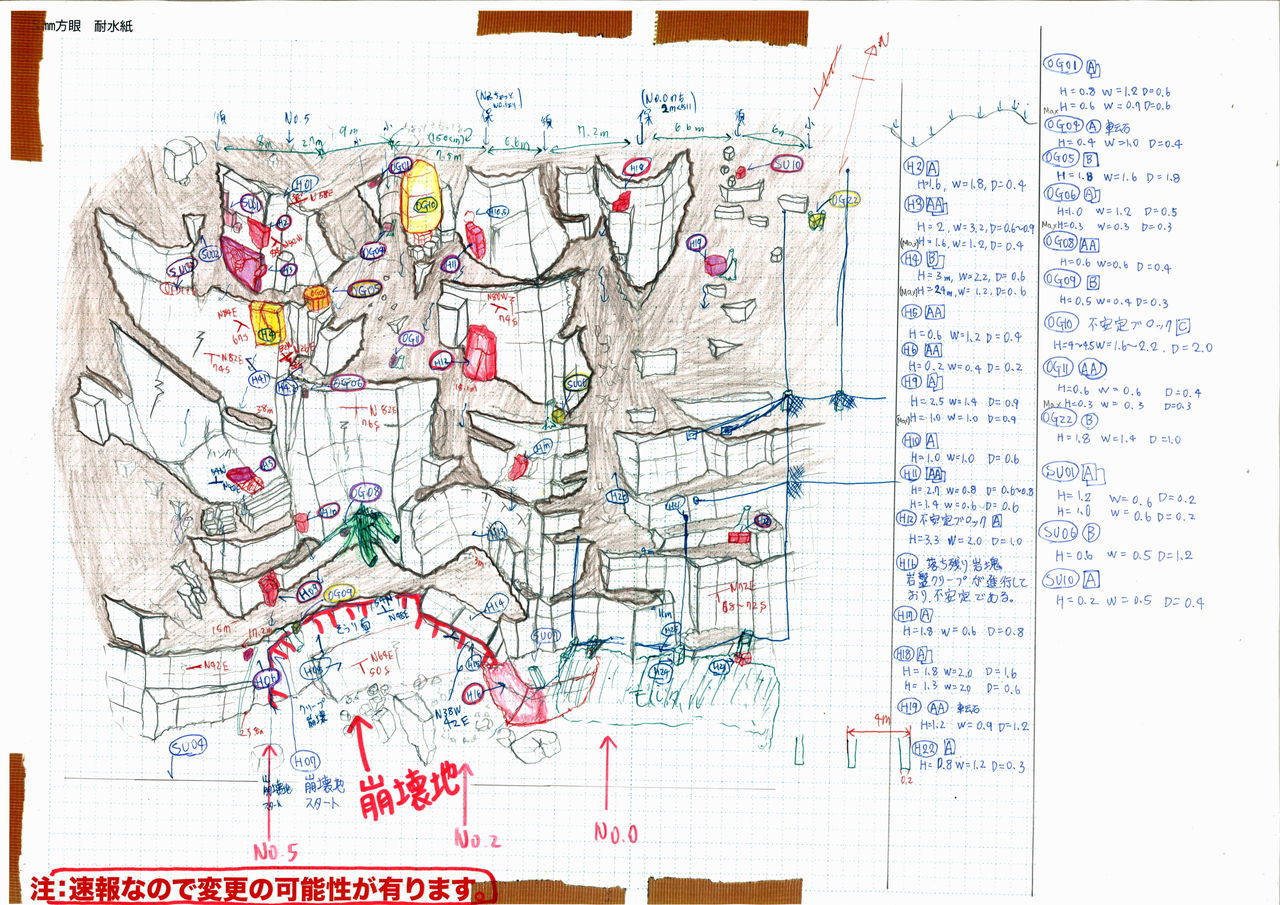 mm方眼 耐水紙
No.5
9m
(No.0のち
7.2m
6.6m
6m
N
H01
OG01
H18
SU10
OG10
H10.5
OG22
H2
H3
SU02
SU03
OG04
H11
H19
OG05
N74E
67S
N82E
74S
H41
OG11
H12
N80W
74S
SU06
OG06
N82E
76S
38m
ハング
H5
OG08
H10
H09
OG09
H14
15m
17.2m
N42E
N64E
50S
H06
H08
クリープ
崩壊
H16
N38W
42E
SU09
H24
H23
N72E
68~72S
モルタル
25.8m
SU04
H07
崩壊地
スタート
崩壊地
スタート
崩壊地
No.5
No.2
No.0
注:速報なので変更の可能性が有ります。
H2 A
H=1.6, W=1.8, D=0.4
H3 AA
H=2, W=3.2, D=0.6~0.9
(Max) H=1.6, W=1.2, D=0.4
H4 B
H=3m, W=2.2, D=0.6
(Max) H=2.4m, W=1.2, D=0.6
H5 AA
H=0.6 W=1.2 D=0.4
H6 AA
H=0.2 W=0.4 D=0.2
H9 A
H=2.5 W=1.4 D=0.9
(Max) H=1.0 W=1.0 D=0.9
H10 A
H=1.0 W=1.0 D=0.6
H11 AA
H=2.7 W=0.8 D=0.6~0.8
H=1.4 W=0.6 D=0.6
H12 不安定ブロック A
H=3.3 W=2.0 D=1.0
H16 落ち残り岩塊
岩盤クリープが進行して
おり、不安定である。
H17 A
H=1.8 W=0.6 D=0.8
H18 A
H=1.8 W=2.0 D=1.6
H=1.3 W=2.0 D=0.6
H19 AA 転石
H=1.2 W=0.9 D=1.2
4m
H22 A
H=0.8 W=1.2 D=0.3
0.2
OG01 A
H=0.8 W=1.2 D=0.6
Max H=0.6 W=0.7 D=0.6
OG04 A 転石
H=0.4 W=1.0 D=0.4
OG05 B
H=1.8 W=1.6 D=1.8
OG06 A
H=1.0 W=1.2 D=0.5
Max H=0.3 W=0.3 D=0.3
OG08 AA
H=0.6 W=0.6 D=0.4
OG09 B
H=0.5 W=0.4 D=0.3
OG10 不安定ブロック C
H=4~4.5 W=1.6~2.2, D=2.0
OG11 AA
H=0.6 W=0.6 D=0.4
Max H=0.3 W=0.3 D=0.3
OG22 B
H=1.8 W=1.4 D=1.0
SU01 A
H=1.2 W=0.6 D=0.2
H=1.0 W=0.6 D=0.2
SU06 B
H=0.6 W=0.5 D=1.2
SU10 A
H=0.2 W=0.5 D=0.4